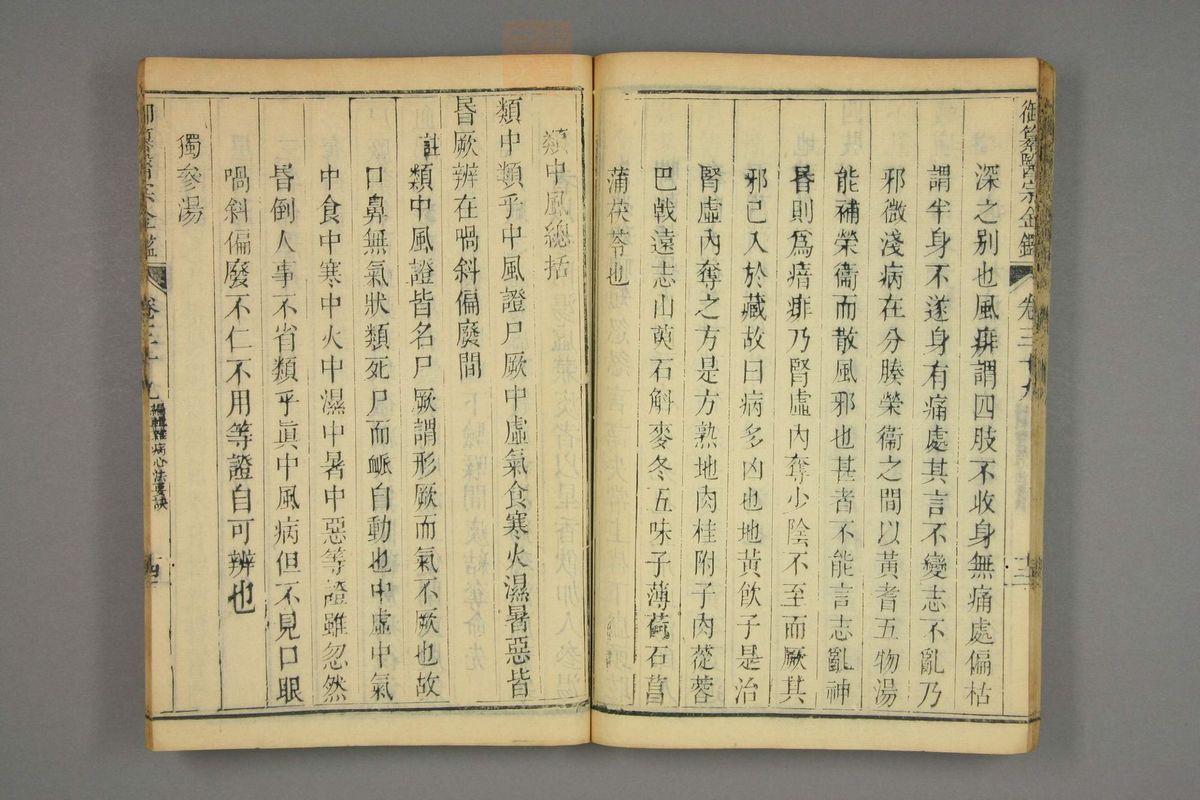 御纂醫宗金鑑
卷三十九
深之别也風痱謂四肢不收身無痛處偏枯
謂半身不遂身有痛處其言不變志不亂乃
邪微淺病在分腠榮衞之間以黃耆五物湯
能補榮衞而散風邪也甚者不能言志亂神
昬則爲瘖痱乃腎虛內奪少陰不至而厥其
邪已入於藏故曰病多凶也地黃飮子是治
腎虛內奪之方是方熟地肉桂附子肉蓯蓉
巴戟遠志山萸石斛麥冬五味子薄荷石菖
蒲茯苓也
類中風總括
類中類乎中風證尸厥中虛氣食寒火濕暑惡皆
昬厥辨在喎斜偏廢間
註類中風證皆名尸厥謂形厥而氣不厥也故
口鼻無氣狀類死尸而脈自動也中虛中氣
中食中寒中火中濕中暑中惡等證雖忽然
昬倒人事不省類乎眞中風病但不見口眼
喎斜偏廢不仁不用等證自可辨也
獨參湯
御纂醫宗金鑑
卷三十九
編輯雜病心法要訣
十四